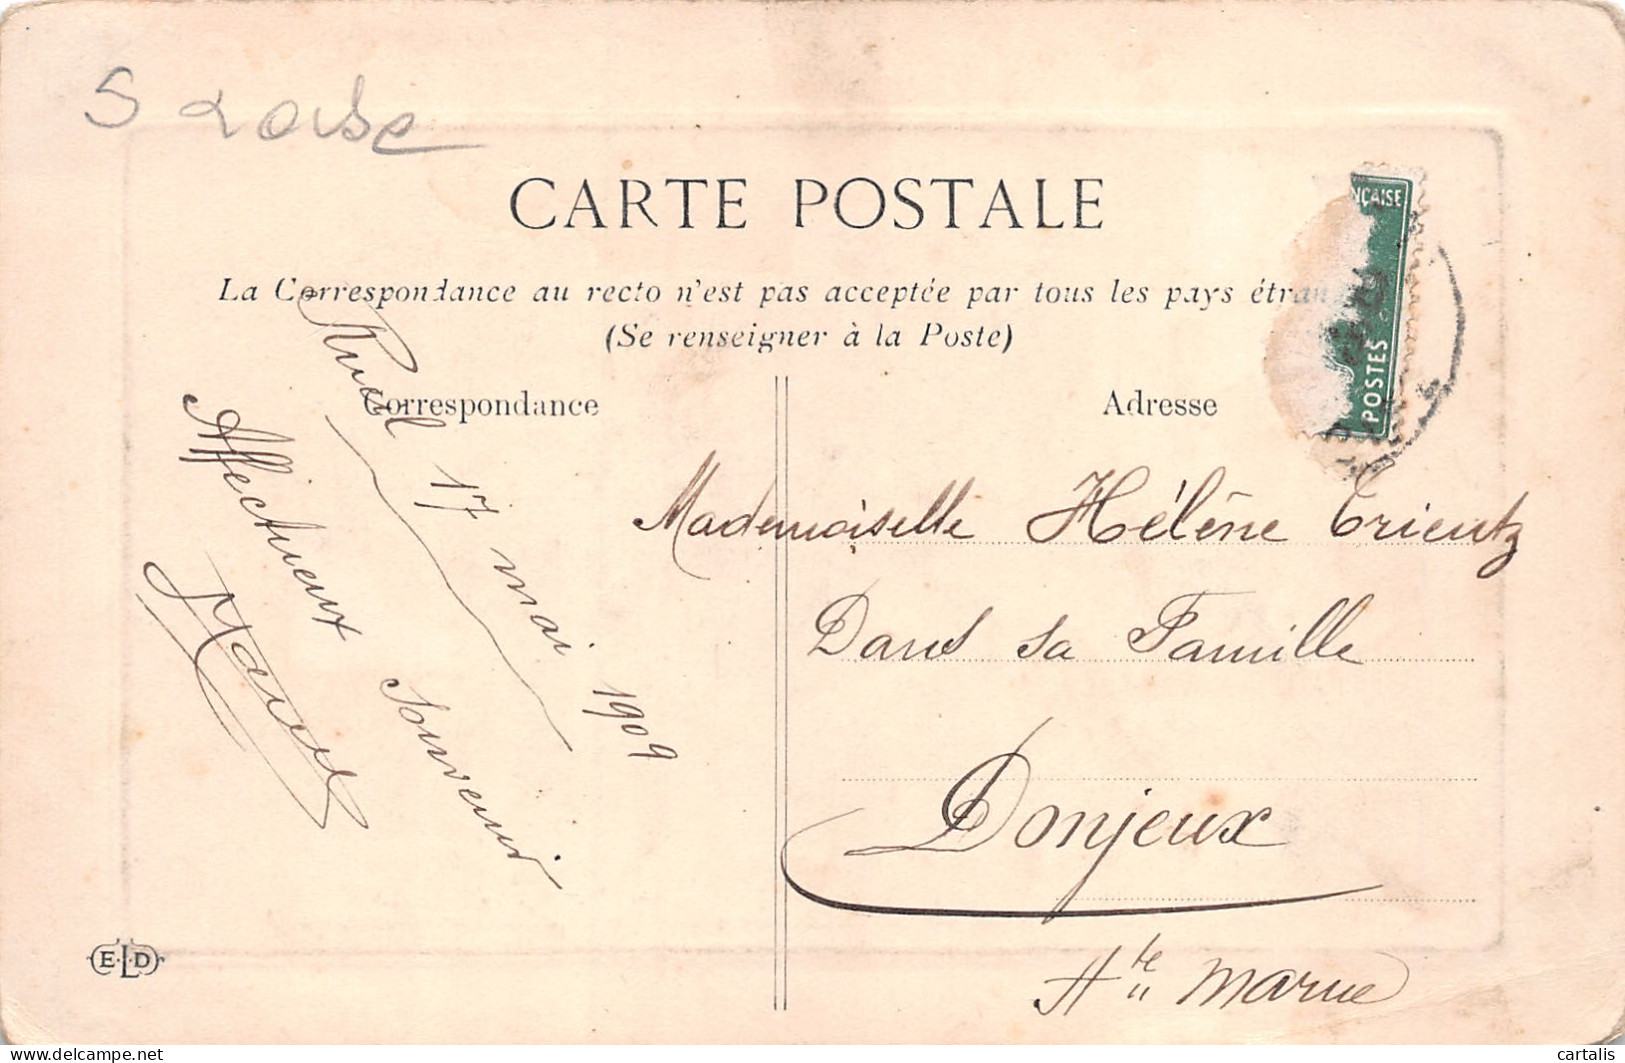 S Loise
CARTE POSTALE
La Correspondance au recto n'est pas acceptée par tous les pays étran
(Se renseigner à la Poste)
Correspondance
Adresse
NÇAISE
POSTES
17 mai 1909
Affectueux Souvenir
Mademoiselle Hélène Trientz
Dans sa Famille
Donjeux
Hte Marne
E.L.D
delcampe.net
cartalis